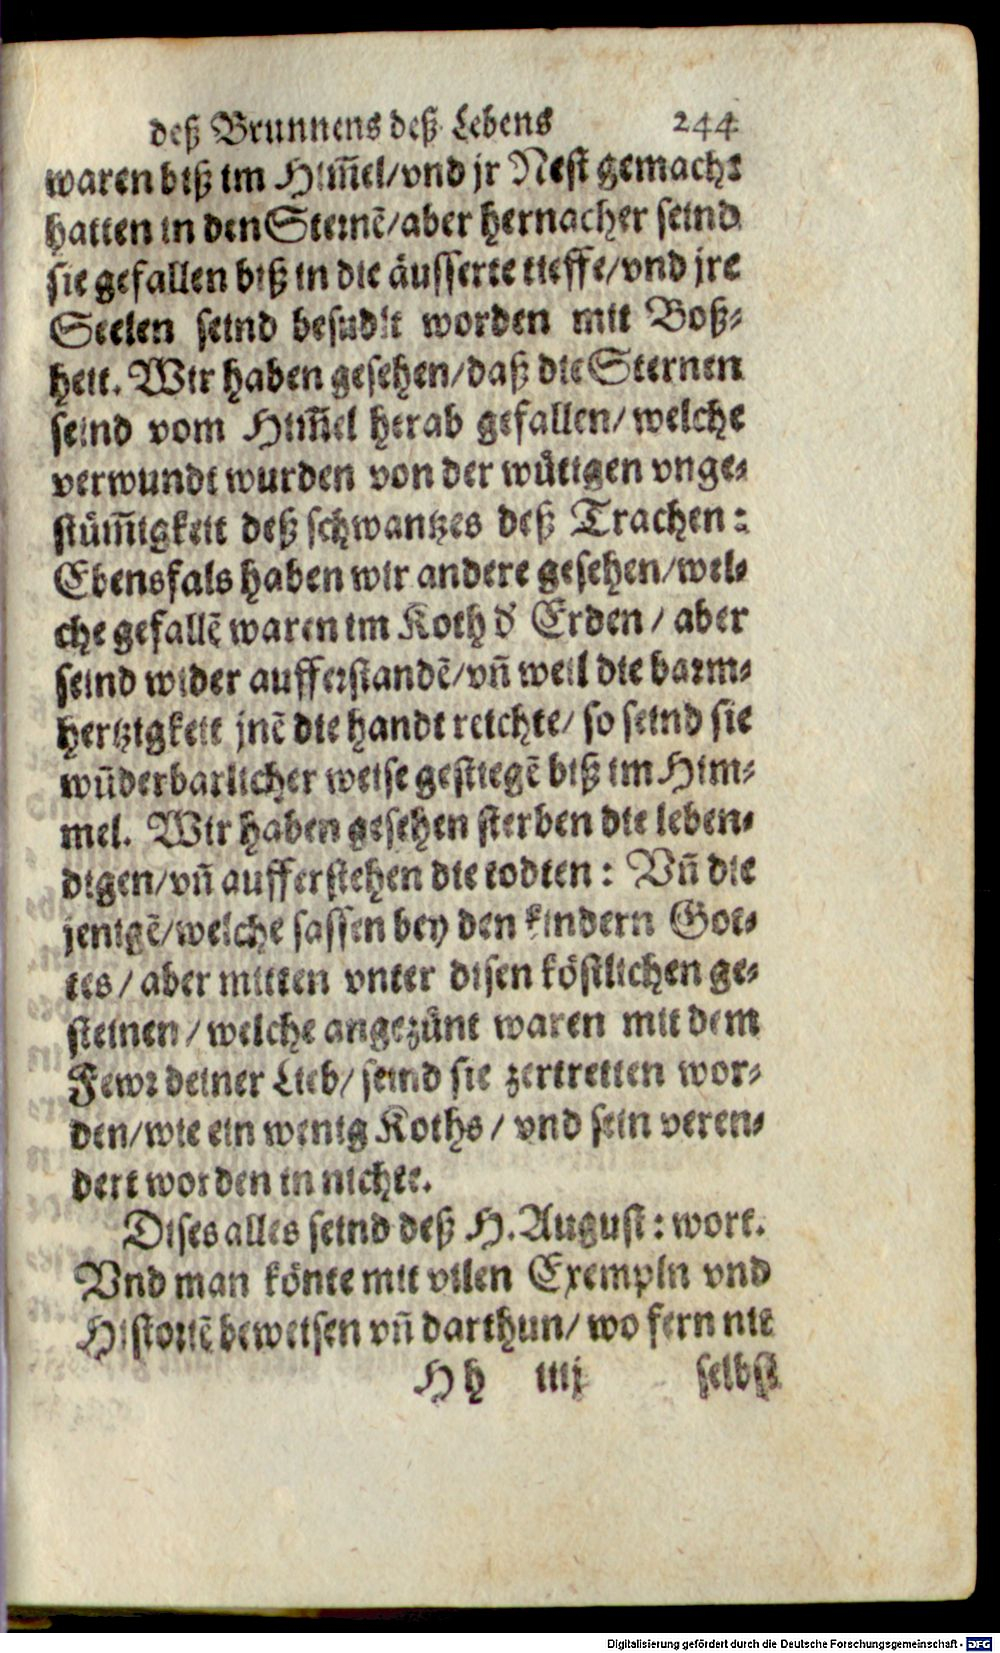 deß Brunnens deß Lebens 244
waren biß im Him̃el/vnd jr Nest gemacht
hatten in den Sternē/aber hernacher seind
sie gefallen biß in die äusserte tieffe/vnd jre
Seelen seind besudlt worden mit Boß⸗
heit. Wir haben gesehen/daß die Sternen
seind vom Him̃el herab gefallen/welche
verwundt wurden von der wütigen vnge⸗
stüm̃igkeit deß schwantzes deß Trachen:
Ebensfals haben wir andere gesehen/wel⸗
che gefallē waren im Koth d' Erden/aber
seind wider aufferstandē/vñ weil die barm⸗
hertzigkeit jnē die handt reichte/so seind sie
wũderbarlicher weise gestiegē biß im Him⸗
mel. Wir haben gesehen sterben die leben⸗
digen/vñ aufferstehen die todten: Vñ die
jenigē/welche sassen bey den kindern Got⸗
tes/aber mitten vnter disen köstlichen ge⸗
steinen/welche angezünt waren mit dem
Fewr deiner Lieb/seind sie zertretten wor⸗
den/wie ein wenig Koths/vnd sein veren⸗
dert worden in nichte.
Dises alles seind deß H. August: wort.
Vnd man könte mit vilen Exempln vnd
Historiē beweisen vñ darthun/wo fern nit
Hh iiij selbst
Digitalisierung gefördert durch die Deutsche Forschungsgemeinschaft - DFG